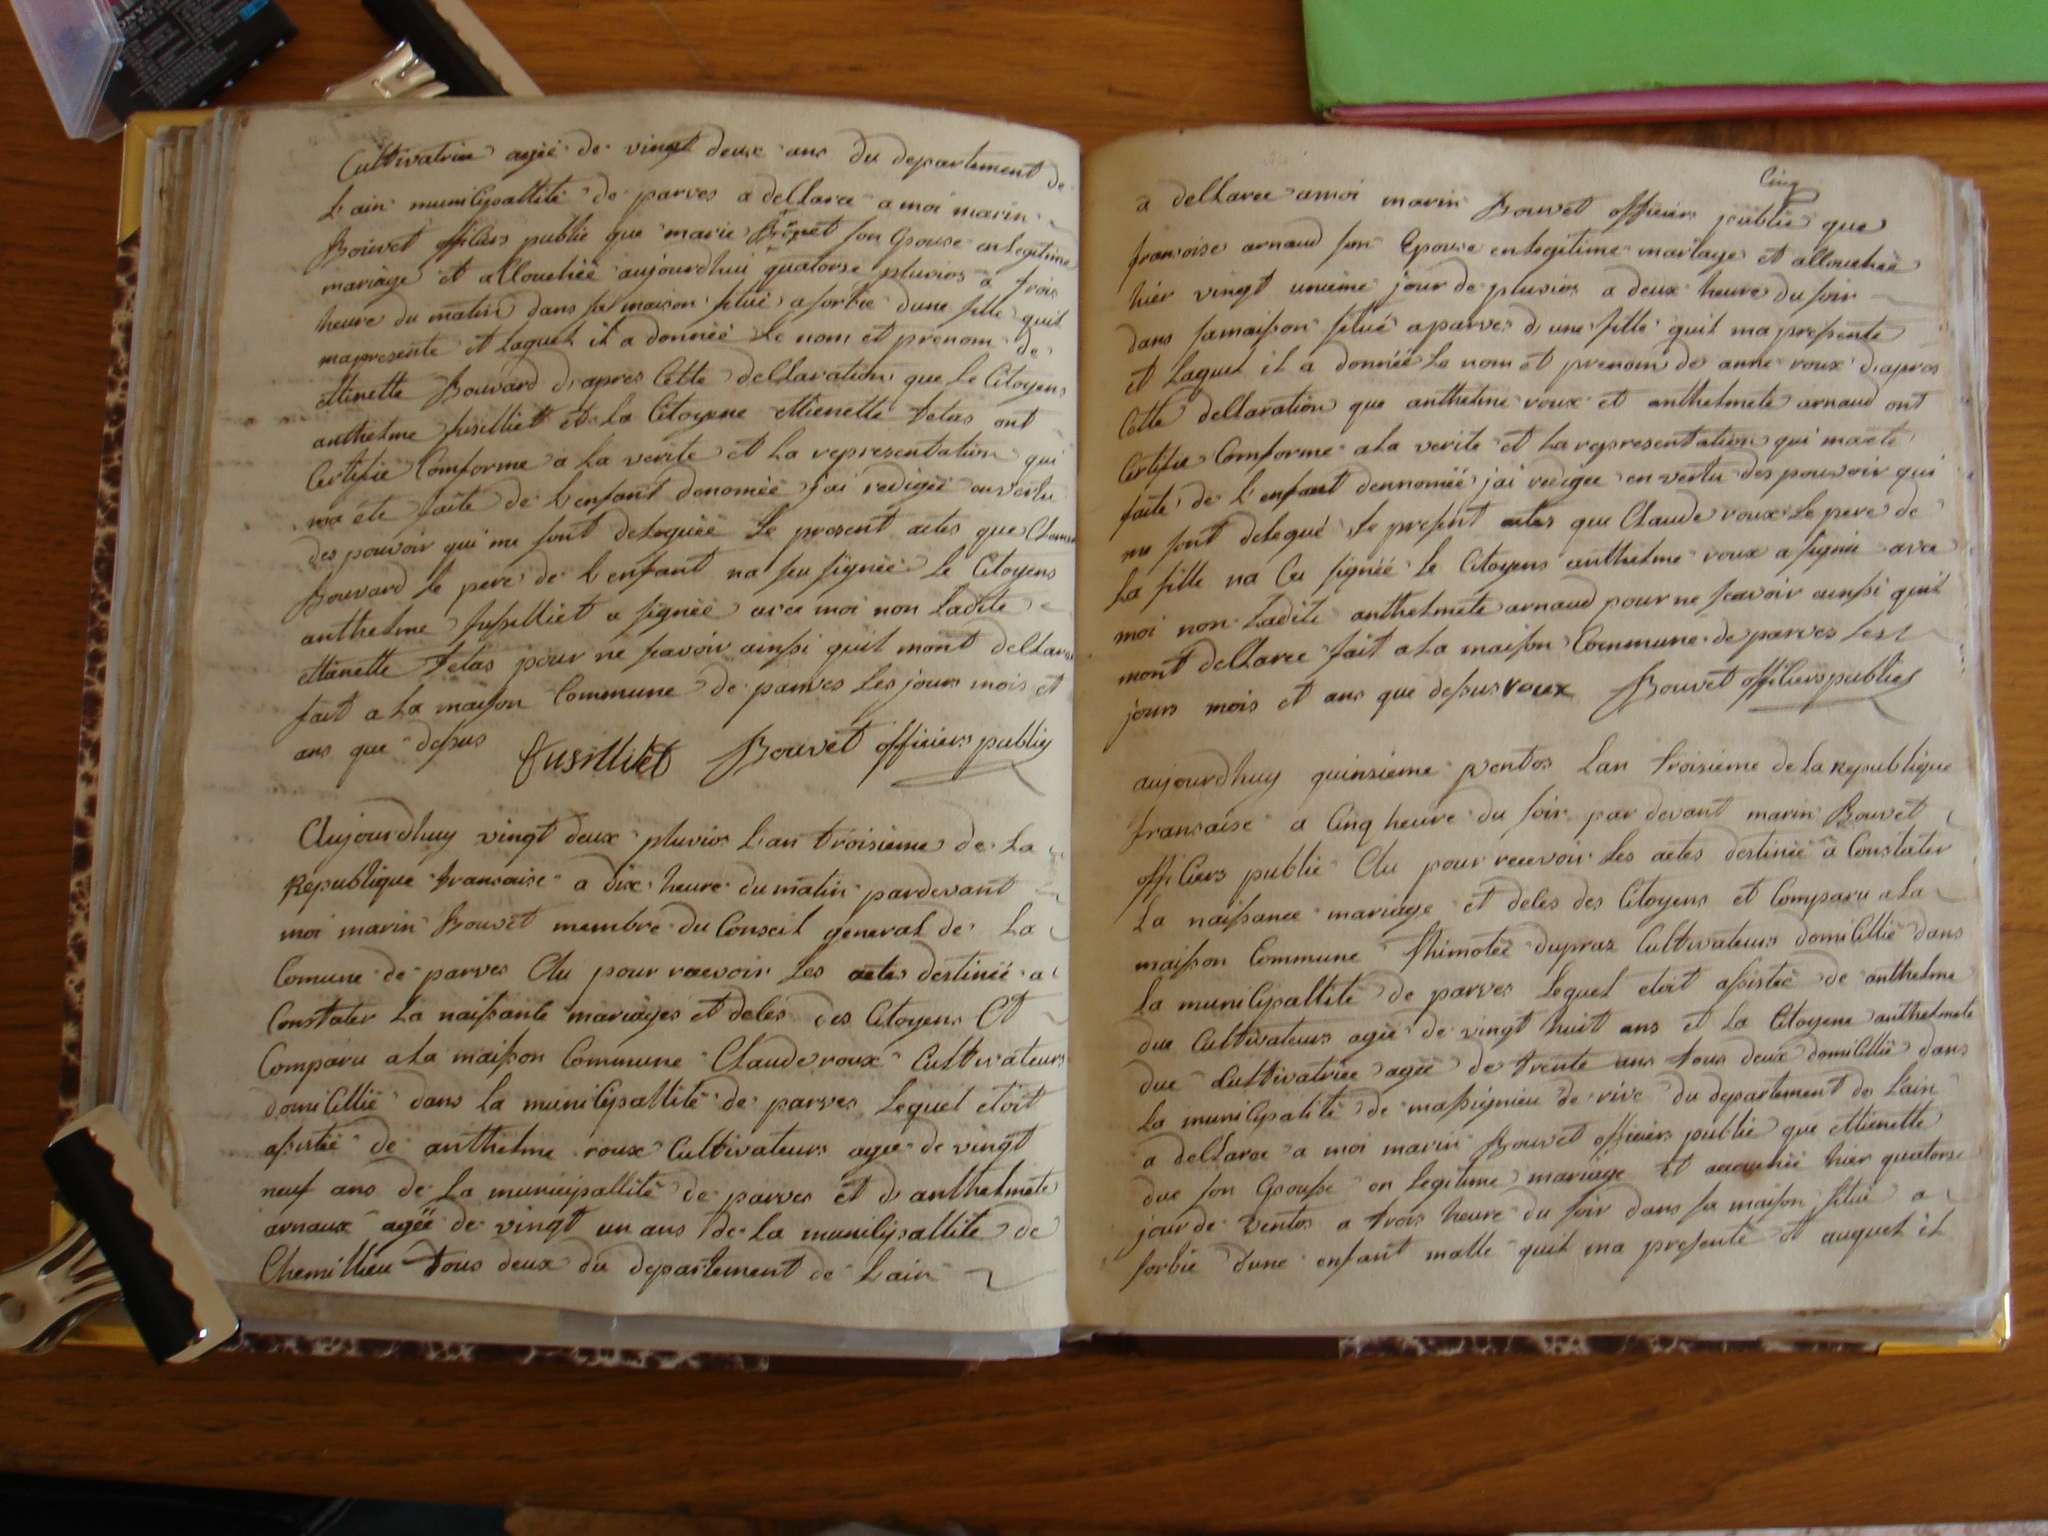 Cultivatrice agéé de vingt deux ans du departement de
Lain municipallité de parves a dellaree a moi marin
Bouvet officiers public que marie son Epouse en legitime
mariage et allouchéé aujourdhui quatorse pluvios a trois
heure du matin dans sa maison situé a sorbie dune fille quil
ma presente et laquel il a donnéé Le nom et prenom de
ettinette Bouvard d'apres Cette dellaration que Le Citoyens
anthelme fusilliet et La Citoyene ettienette telas ont
Certifie Comforme a La verite et La representation qui
ma ete faite de L'enfant denoméé j'ai redigéé en vertu
des pouvoir qui me sont deleguéé Le present actes que
Bouvard Le pere de L'enfant na seu signéé Le Citoyens
anthelme fusilliet a signéé avec moi non Ladite
telas pour ne scavoir ainsi quil mont dellaree
fait a La maison Commune de parves Les jours mois et
ans que desus fusilliet Bouvet officiers public
Aujourdhuy vingt deux pluvios L'an troisieme de La
Republique fransaise a dix heure du matin pardevant
moi marin Bouvet membre du Conseil general de La
Comune de parves Elu pour recevoir Les actes destinéé a
Constater La naissance mariages et deles des Citoyens Et
Comparu a La maison Commune Claude roux Cultivateurs
domicillié dans La municipallité de parves Lequel etoit
asistéé de anthelme roux Cultivateurs agéé de vingt
neuf ans de La municipallité de parves et d'anthelmete
arnaux agéé de vingt un ans de La municipallité de
Chemillieu tous deux du departement de Lain
Cinq
a dellaree a moi marin Bouvet officiers public que
fransoise arnaud son Epouse en legitime mariage et allouchéé
hier vingt unieme jour de pluvios a deux heure du soir
dans sa maison situé a parves d'une fille quil ma presente
et Laquel il a donnéé Le nom et prenom de anne roux d'apres
Cette dellaration que anthelme roux et anthelmete arnaud ont
Certifie Comforme a La verite et La representation qui ma ete
faite de L'enfant dennoméé j'ai redigee en vertu des pouvoir qui
me sont delegué Le present actes que Claude roux Le pere de
La fille na Ceu signéé Le Citoyens anthelme roux a signée avec
moi non Ladite anthelmete arnaud pour ne scavoir ainsi quil
mont dellaree fait a La maison Commune de parves Les
jours mois et ans que desus roux Bouvet officiers public
aujourdhuy quinsieme ventos Lan troisieme de La Republique
fransaise a Cinq heure du soir par devant marin Bouvet
officiers public Elu pour recevoir Les actes destinéé a Constater
La naissance mariage et deles des Citoyens et Comparu a La
maison Commune thimotéé dupraz Cultivateurs domicillié dans
La municipallité de parves Lequel etoit asistéé de anthelme
duc Cultivateurs agéé de vingt huit ans et La Citoyene anthelmete
duc Cultivatrice agéé de trente ans tous deux domicillié dans
La municipalité de massignieu de rive du departement de Lain
a dellaree a moi marin Bouvet officiers public que ettienette
duc son Epouse en legitime mariage et acouchéé hier quatorse
jour de ventos a trois heure du soir dans sa maison situé a
sorbie d'une enfant malle quil ma presente et auquel il